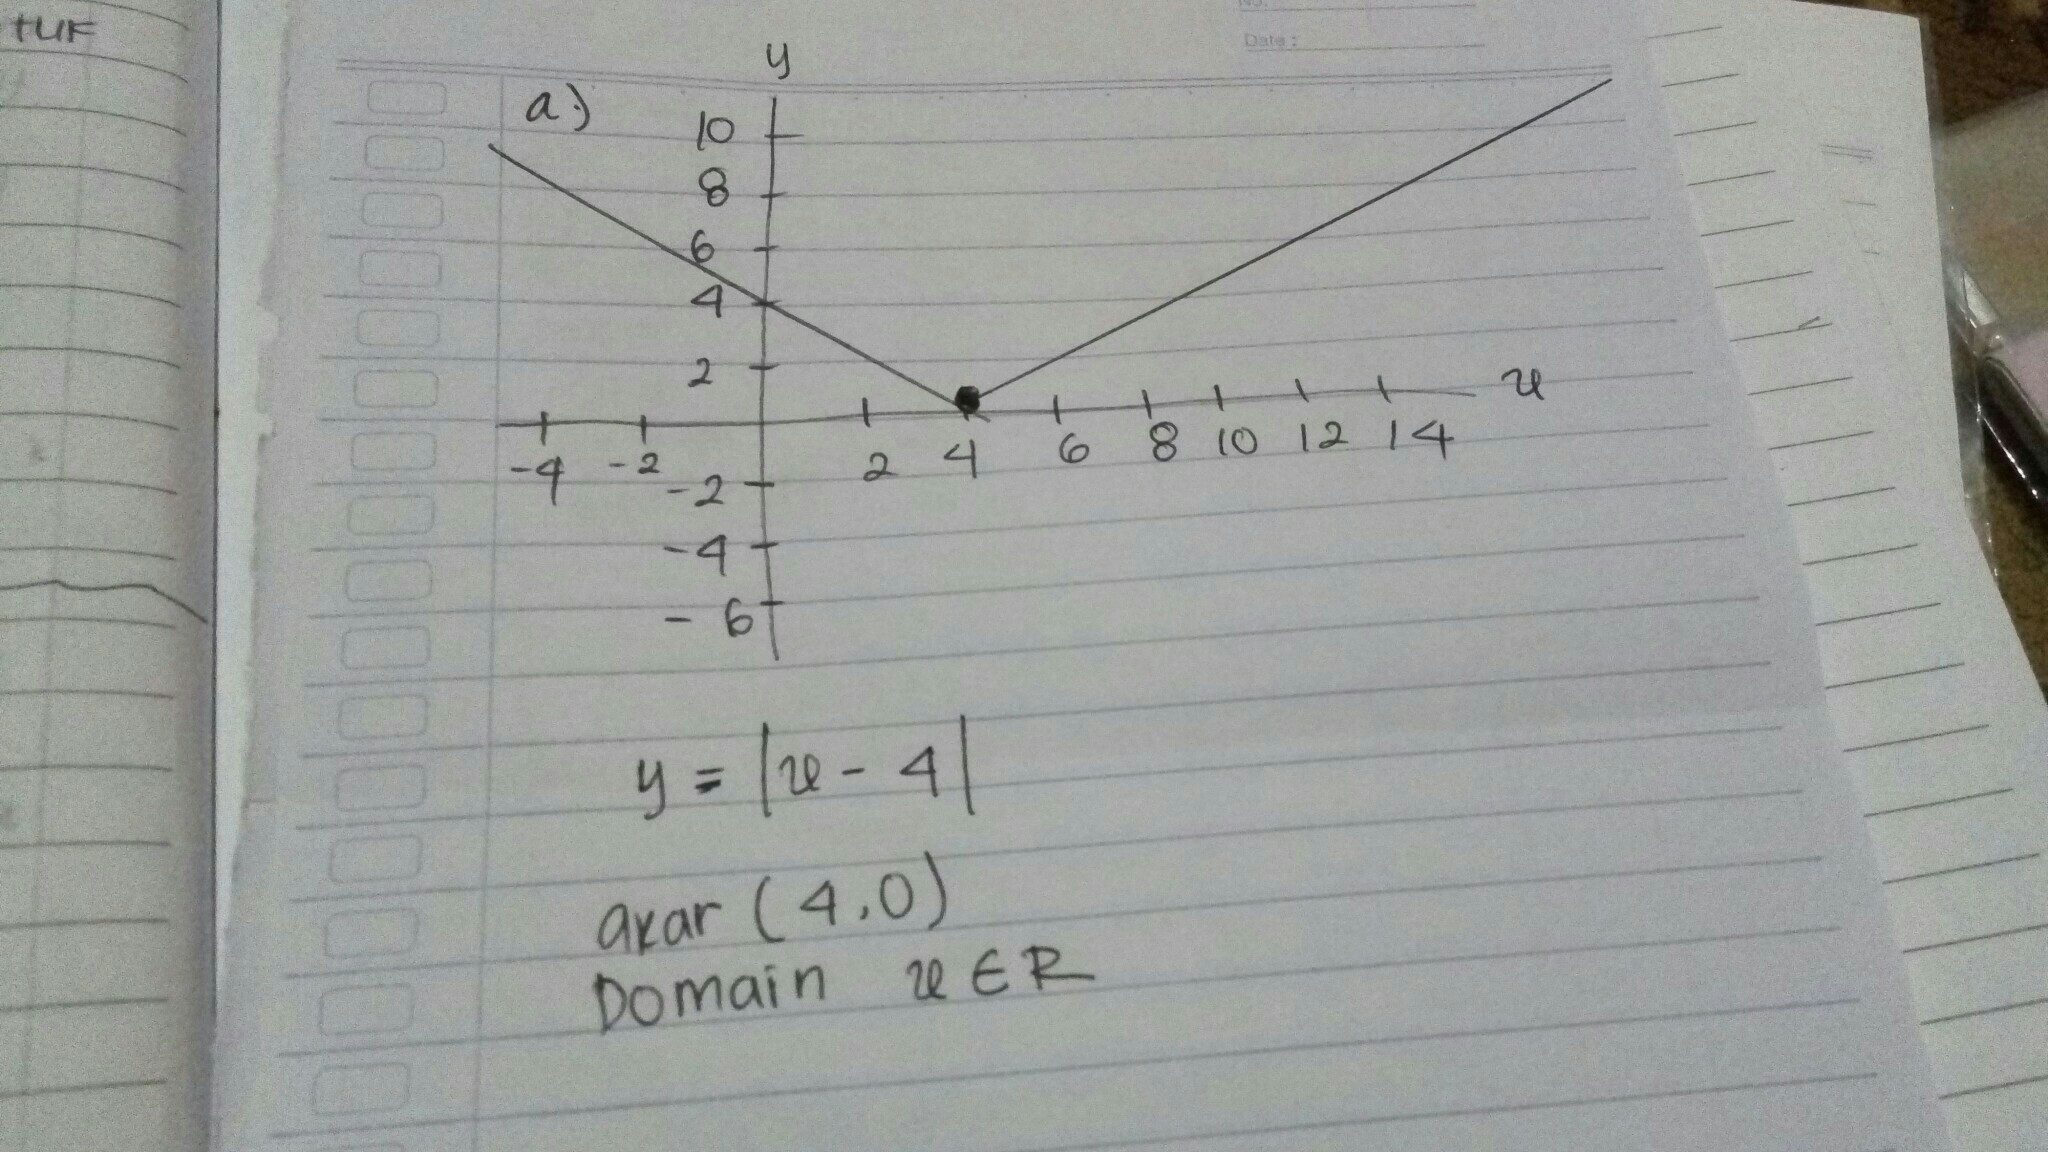 TUK
No.
Date :
y
a.)
10
8
6
4
2
x
-4 -2 2 4 6 8 10 12 14
-2
-4
- 6
y = |x - 4|
akar (4,0)
Domain x ∈ R